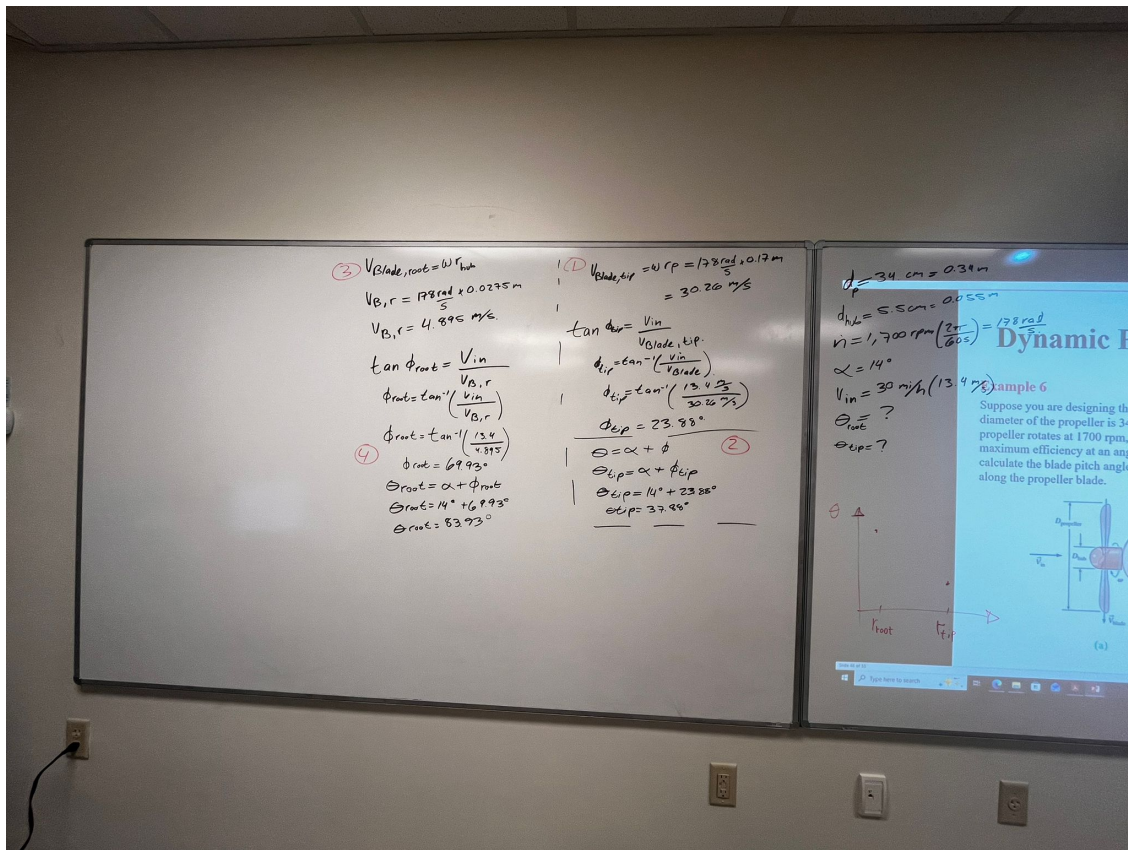 ③ V_Blade,root = ω r_hub
V_B,r = 178 rad/s * 0.0275 m
V_B,r = 4.895 m/s.
tan ϕ_root = V_in / V_B,r
ϕ_root = tan⁻¹(V_in / V_B,r)
ϕ_root = tan⁻¹(13.4 / 4.895)
④
ϕ_root = 69.93°
θ_root = α + ϕ_root
θ_root = 14° + 69.93°
θ_root = 83.93°
① V_Blade,tip = ω r_p = 178 rad/s * 0.17 m
= 30.26 m/s
tan ϕ_tip = V_in / V_Blade,tip.
ϕ_tip = tan⁻¹(V_in / V_Blade).
ϕ_tip = tan⁻¹(13.4 m/s / 30.26 m/s)
ϕ_tip = 23.88°
②
θ = α + ϕ
θ_tip = α + ϕ_tip
θ_tip = 14° + 23.88°
θ_tip = 37.88°
d_p = 34 cm = 0.34 m
d_hub = 5.5 cm = 0.055 m
n = 1,700 rpm (2π / 60 s) = 178 rad/s.
α = 14°
V_in = 30 mi/h (13.4 m/s)
θ_root = ?
θ_tip = ?
θ
r_root r_tip
Dynamic
Example 6
Suppose you are designing th
diameter of the propeller is 34
propeller rotates at 1700 rpm,
maximum efficiency at an ang
calculate the blade pitch angle
along the propeller blade.
D_propeller
D_hub
V_in
V_blade
(a)
Type here to search